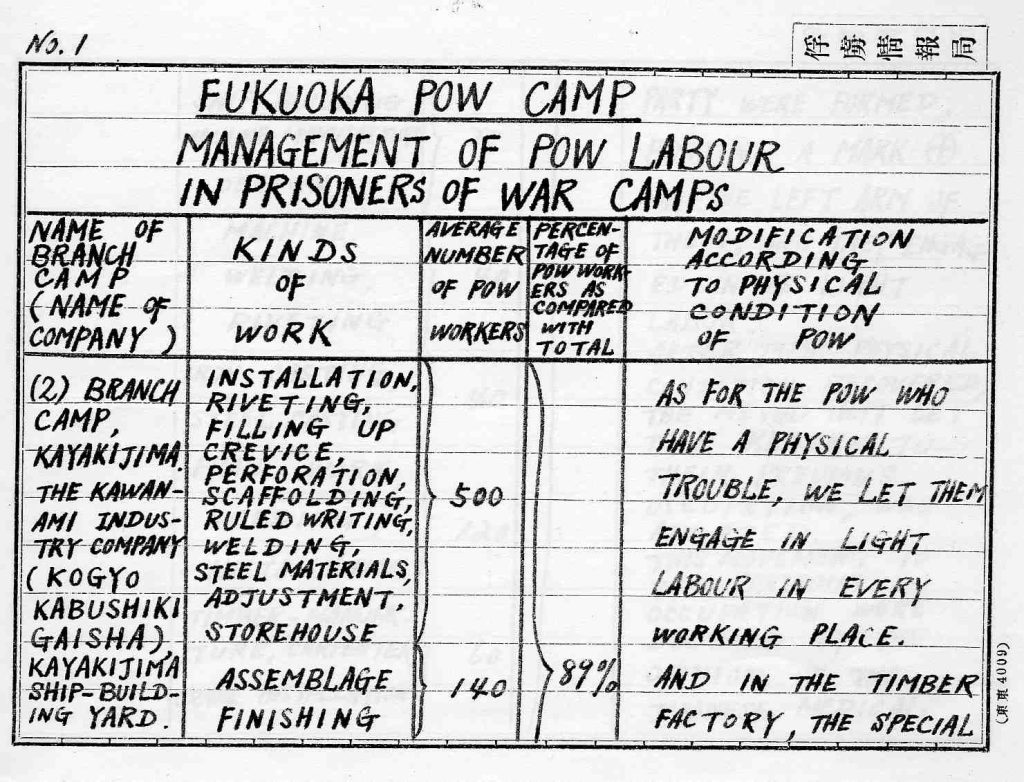 No. 1
俘虜情報局
FUKUOKA POW CAMP
MANAGEMENT OF POW LABOUR
IN PRISONERS OF WAR CAMPS
NAME OF
BRANCH
CAMP
(NAME OF
COMPANY)
KINDS
OF
WORK
AVERAGE
NUMBER
OF POW
WORKERS
PERCEN-
TAGE OF
POW WORK-
ERS AS
COMPARED
WITH
TOTAL
MODIFICATION
ACCORDING
TO PHYSICAL
CONDITION
OF POW
(2) BRANCH
CAMP,
KAYAKIJIMA.
THE KAWAN-
AMI INDUS-
TRY COMPANY
(KOGYO
KABUSHIKI
GAISHA),
KAYAKIJIMA
SHIP-BUILD-
ING YARD.
INSTALLATION,
RIVETING,
FILLING UP
CREVICE,
PERFORATION,
SCAFFOLDING,
RULED WRITING,
WELDING,
STEEL MATERIALS,
ADJUSTMENT,
STOREHOUSE
500
ASSEMBLAGE
FINISHING
140
89%
AS FOR THE POW WHO
HAVE A PHYSICAL
TROUBLE, WE LET THEM
ENGAGE IN LIGHT
LABOUR IN EVERY
WORKING PLACE.
AND IN THE TIMBER
FACTORY, THE SPECIAL
(東東 4009)